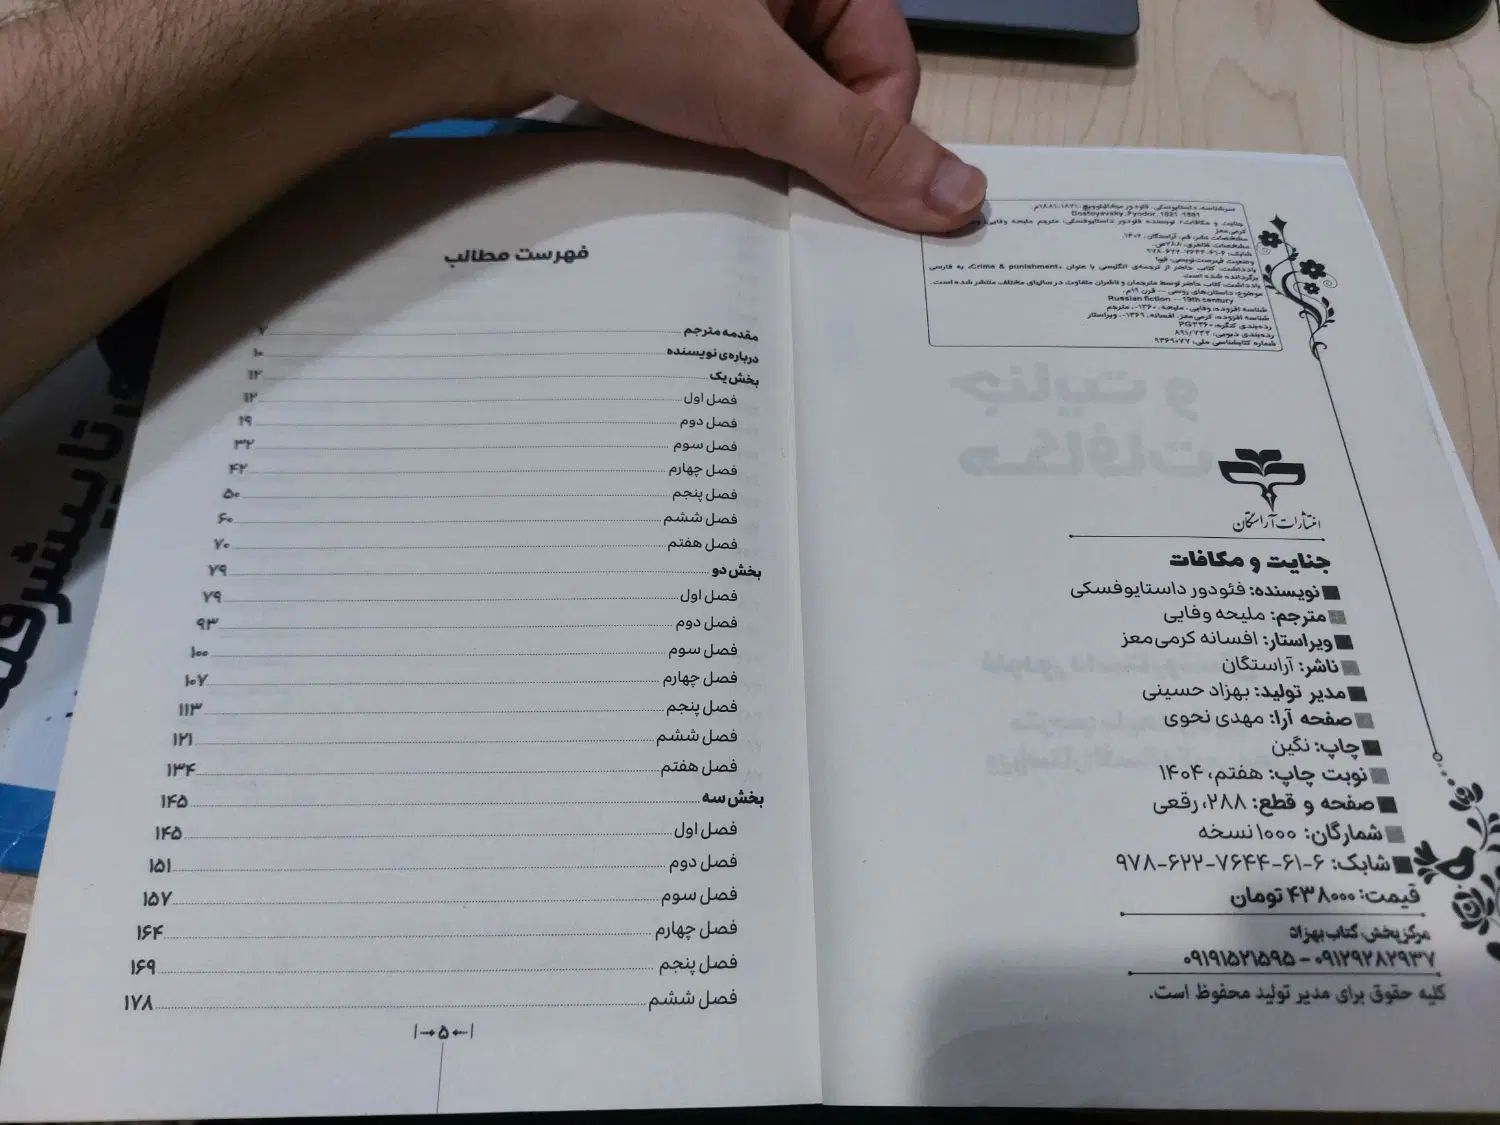 سرشناسه: داستایوفسکی، فئودور میخائیلوویچ، ۱۸۲۱-۱۸۸۱م.
Dostoyevsky, Fyodor, 1821-1881
جنایت و مکافات/ نویسنده فئودور داستایوفسکی؛ مترجم ملیحه وفایی؛
کرمی‌معز
مشخصات نشر: قم، آراستگان، ۱۴۰۲.
مشخصات ظاهری: ۲۸۸ص.
شابک: ۶-۶۱-۷۶۴۴-۶۲۲-۹۷۸
وضعیت فهرست‌نویسی: فیپا
یادداشت: کتاب حاضر از ترجمه‌ی انگلیسی با عنوان «Crime & punishment» به فارسی
برگردانده شده است
یادداشت: کتاب حاضر توسط مترجمان و ناشران متفاوت در سالهای مختلف منتشر شده است.
موضوع: داستان‌های روسی -- قرن ۱۹م.
Russian fiction -- 19th century
شناسه افزوده: وفایی، ملیحه، ۱۳۶۰-، مترجم
شناسه افزوده: کرمی‌معز، افسانه، ۱۳۶۹-، ویراستار
رده‌بندی کنگره: PG۳۳۶۰
رده‌بندی دیویی: ۸۹۱/۷۳۳
شماره کتابشناسی ملی: ۹۳۶۹۰۷۷
انتشارات آراستگان
جنایت و مکافات
نویسنده: فئودور داستایوفسکی
مترجم: ملیحه وفایی
ویراستار: افسانه کرمی‌معز
ناشر: آراستگان
مدیر تولید: بهزاد حسینی
صفحه آرا: مهدی نحوی
چاپ: نگین
نوبت چاپ: هفتم، ۱۴۰۴
صفحه و قطع: ۲۸۸، رقعی
شمارگان: ۱۰۰۰ نسخه
شابک: ۶-۶۱-۷۶۴۴-۶۲۲-۹۷۸
قیمت: ۴۳۸۰۰۰ تومان
مرکز پخش: کتاب بهزاد
۰۹۱۲۹۲۸۲۹۳۷ - ۰۹۱۹۱۵۲۱۵۹۵
کلیه حقوق برای مدیر تولید محفوظ است.
فهرست مطالب
مقدمه مترجم ۷
درباره‌ی نویسنده ۱۰
بخش یک ۱۲
فصل اول ۱۲
فصل دوم ۱۹
فصل سوم ۳۲
فصل چهارم ۴۲
فصل پنجم ۵۰
فصل ششم ۶۰
فصل هفتم ۷۰
بخش دو ۷۹
فصل اول ۷۹
فصل دوم ۹۳
فصل سوم ۱۰۰
فصل چهارم ۱۰۷
فصل پنجم ۱۱۳
فصل ششم ۱۲۱
فصل هفتم ۱۳۴
بخش سه ۱۴۵
فصل اول ۱۴۵
فصل دوم ۱۵۱
فصل سوم ۱۵۷
فصل چهارم ۱۶۴
فصل پنجم ۱۶۹
فصل ششم ۱۷۸
۵